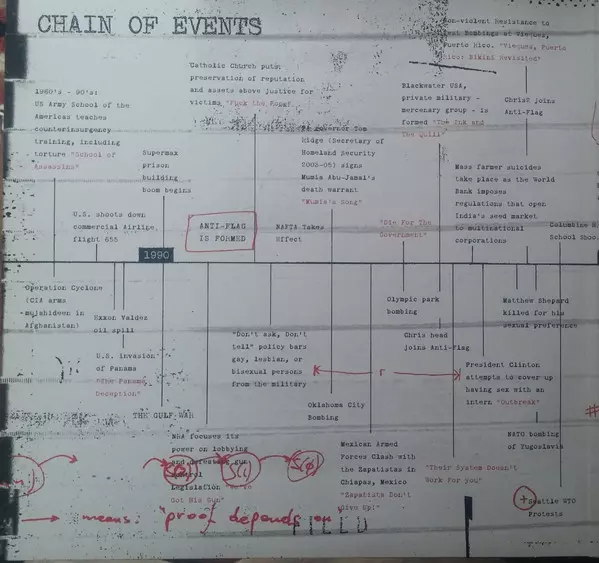 CHAIN OF EVENTS
Non-violent Resistance to
Test Bombings at Vieques,
Puerto Rico. "Vieques, Puerto
Rico: Bikini Revisited"
Catholic Church puts
preservation of reputation
and assets above justice for
victims "Fuck the
1960's - 90's:
US Army School of the
Americas teaches
counterinsurgency
training, including
torture "School of
Assassins"
Blackwater USA,
private military -
mercenary group - is
formed "The Ink and
The Quill"
Chris#2 joins
Anti-Flag
PA Governor Tom
Ridge (Secretary of
Homeland Security
2003-05) signs
Mumia Abu-Jamal's
death warrant
"Mumia's Song"
Supermax
prison
building
boom begins
Mass farmer suicides
take place as the World
Bank imposes
regulations that open
India's seed market
to multinational
corporations
U.S. shoots down
commercial Airline,
flight 655
ANTI-FLAG
IS FORMED
NAFTA Takes
Effect
"Die For The
Government"
Columbine H.
School Shoo
1990
Operation Cyclone
(CIA arms
mujahideen in
Afghanistan)
Exxon Valdez
oil spill
Olympic park
bombing
Matthew Shepard
killed for his
sexual preference
"Don't ask, Don't
tell" policy bars
gay, lesbian, or
bisexual persons
from the military
Chris head
joins Anti-Flag
U.S. invasion
of Panama
"The Panama
Deception"
r
President Clinton
attempts to cover up
having sex with an
intern "Outbreak"
Oklahoma City
Bombing
THE GULF WAR
#
NRA focuses its
power on lobbying
and defeating gun
control
Legislation "We've
Got His Gun"
Mexican Armed
Forces Clash with
the Zapatistas in
Chiapas, Mexico
"Zapatista Don't
Give Up!"
NATO bombing
of Yugoslavia
"Their System Doesn't
Work For you"
S(1)
S(0)
+
Seattle WTO
Protests
→ means: "proof depends on"